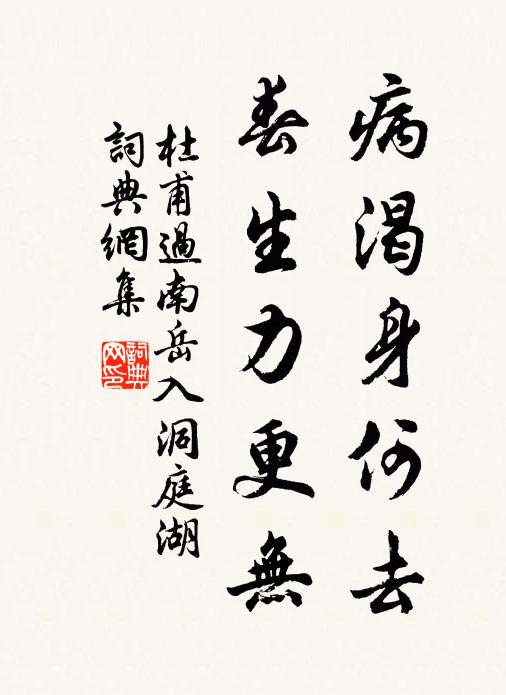 病渴身何去
春生力更無
杜甫過南岳入洞庭湖
詞典網集
詞典
网印